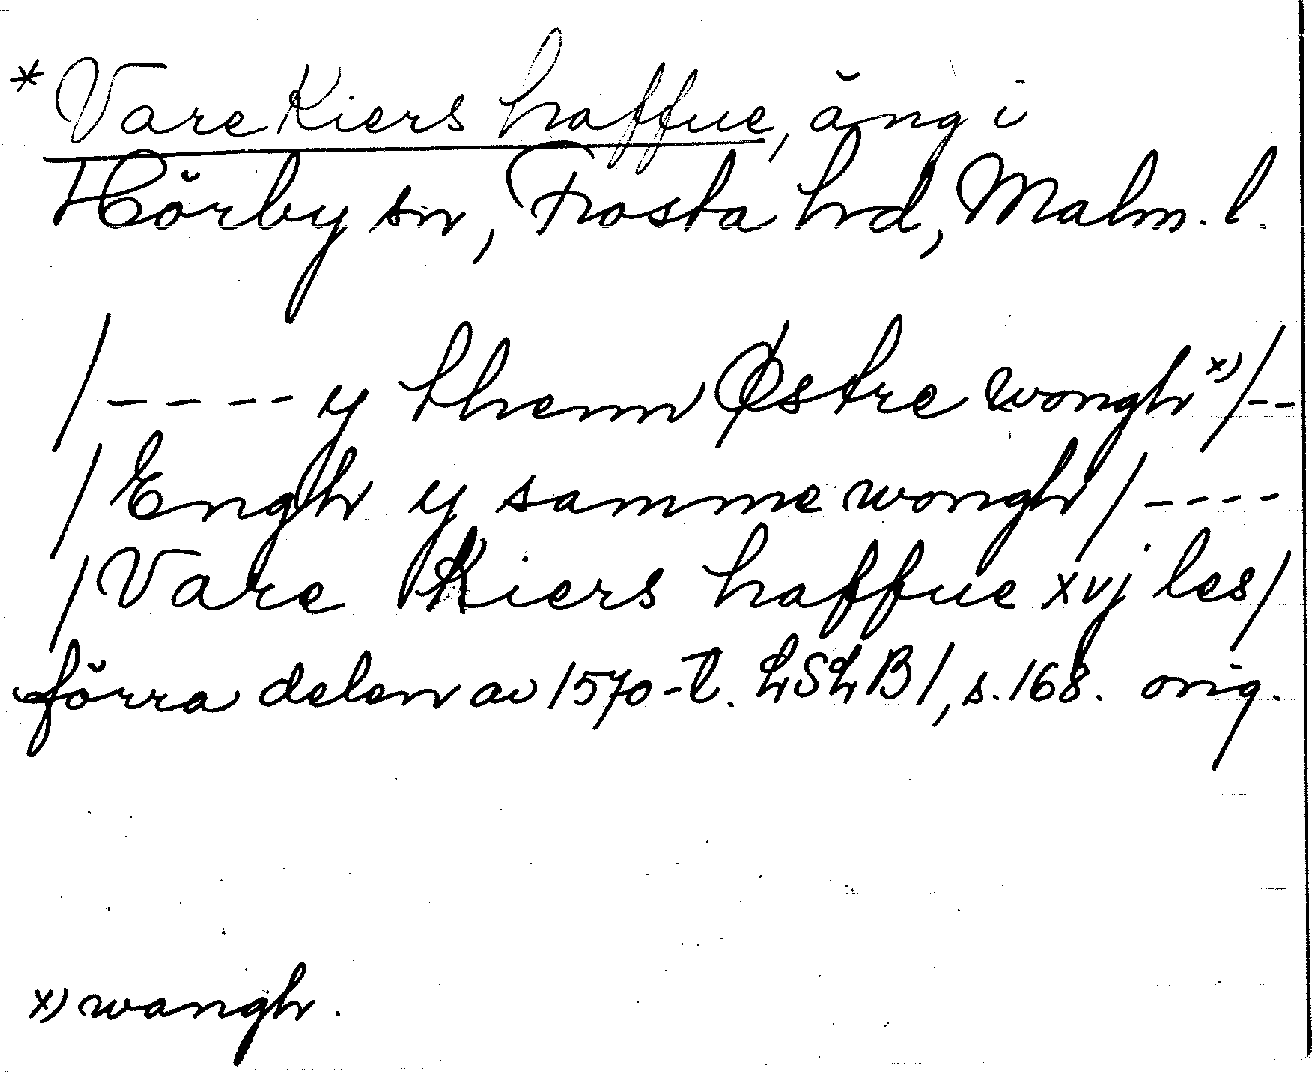 * Vare Kiers haffue, äng i
Hörby sn, Frosta hd, Malm. l.
/---- y thenn Østre wongh x)/--
/Engh y samme wongh/----
/Vare Kiers haffue xvj les/
förra delen av 1570-t. LSLB1, s. 168. orig.
x) wangh.